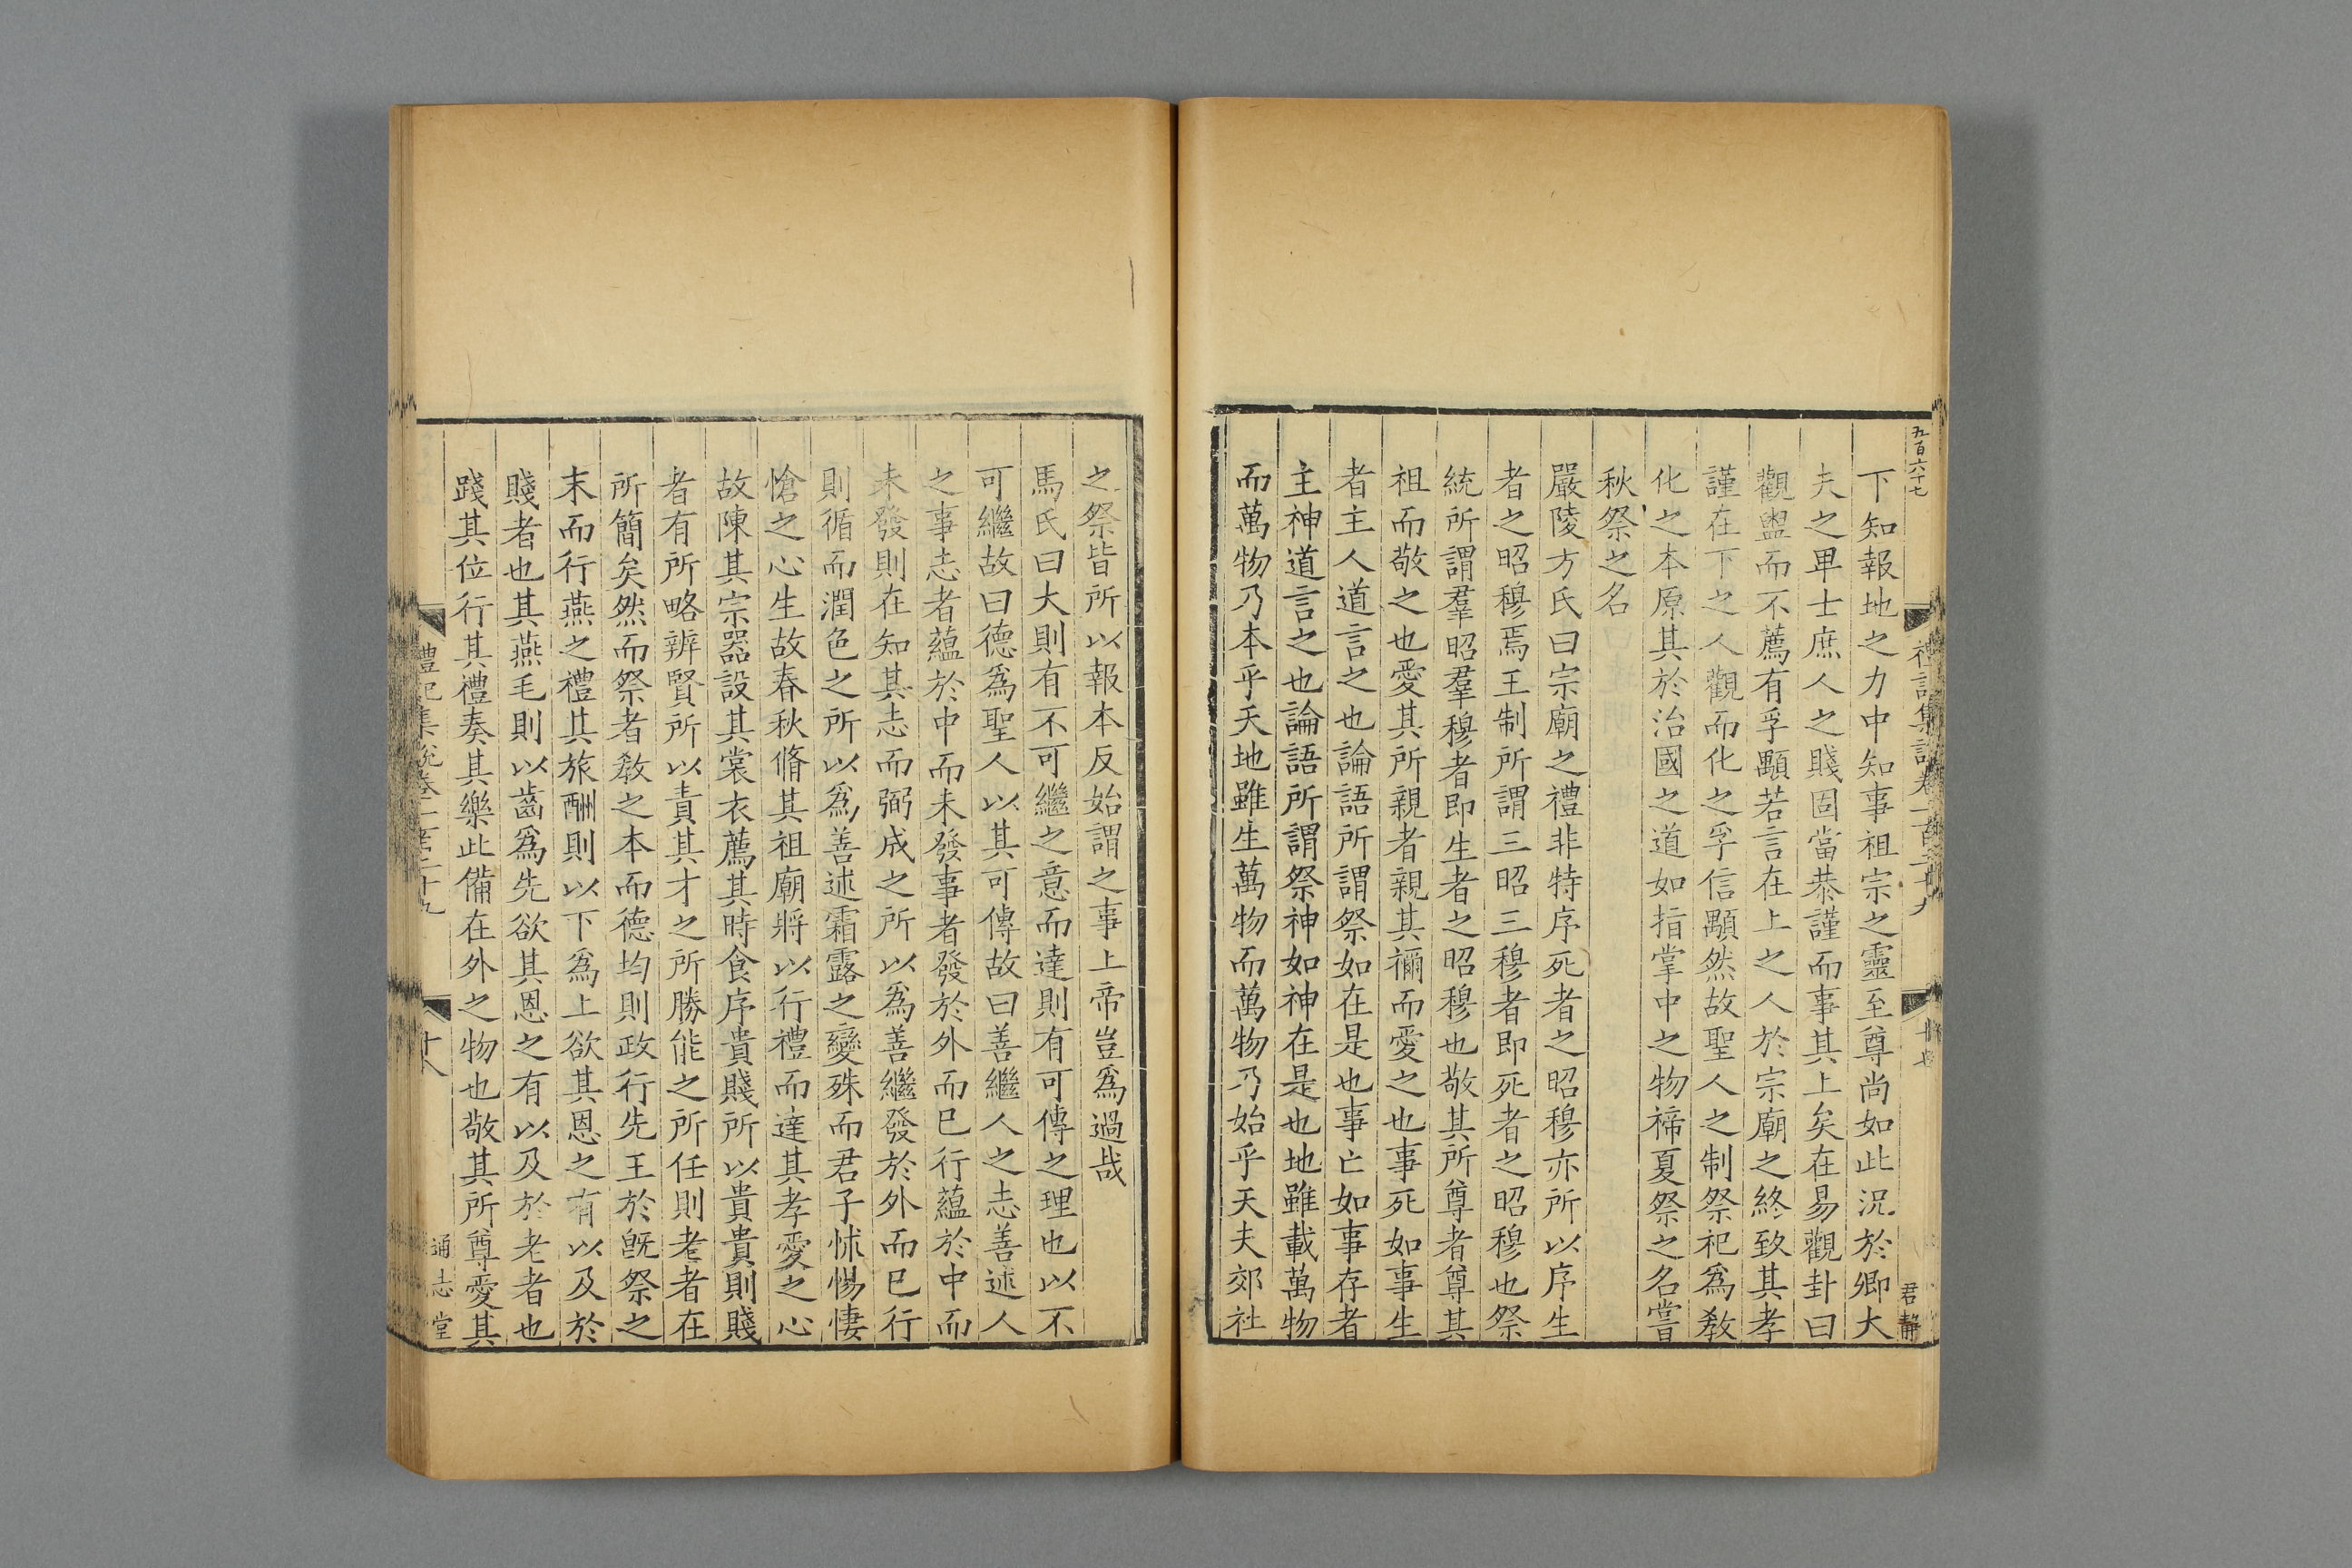 五百六十七
禮記集說卷一百二十九
君静
下知報地之力中知事祖宗之靈至尊尚如此況於卿大
夫之卑士庶人之賤固當恭謹而事其上矣在易觀卦曰
觀盥而不薦有孚顒若言在上之人於宗廟之終致其孝
謹在下之人觀而化之孚信顒然故聖人之制祭祀爲教
化之本原其於治國之道如指掌中之物禘夏祭之名嘗
秋祭之名
嚴陵方氏曰宗廟之禮非特序死者之昭穆亦所以序生
者之昭穆焉王制所謂三昭三穆者即死者之昭穆也祭
統所謂羣昭羣穆者即生者之昭穆也敬其所尊者尊其
祖而敬之也愛其所親者親其禰而愛之也事死如事生
者主人道言之也論語所謂祭如在是也事亡如事存者
主神道言之也論語所謂祭神如神在是也地雖載萬物
而萬物乃本乎天地雖生萬物而萬物乃始乎天夫郊社
之祭皆所以報本反始謂之事上帝豈爲過哉
馬氏曰大則有不可繼之意而達則有可傳之理也以不
可繼故曰德爲聖人以其可傳故曰善繼人之志善述人
之事志者蘊於中而未發事者發於外而已行蘊於中而
未發則在知其志而弼成之所以爲善繼發於外而已行
則循而潤色之所以爲善述霜露之變殊而君子怵惕悽
愴之心生故春秋脩其祖廟將以行禮而達其孝愛之心
故陳其宗器設其裳衣薦其時食序貴賤所以貴貴則賤
者有所略辨賢所以責其才之所勝能之所任則老者在
所簡矣然而祭者教之本而德均則政行先王於旣祭之
末而行燕之禮其旅酬則以下爲上欲其恩之有以及於
賤者也其燕毛則以齒爲先欲其恩之有以及於老者也
踐其位行其禮奏其樂此備在外之物也敬其所尊愛其
禮記集說卷一百二十九
十八
通志堂